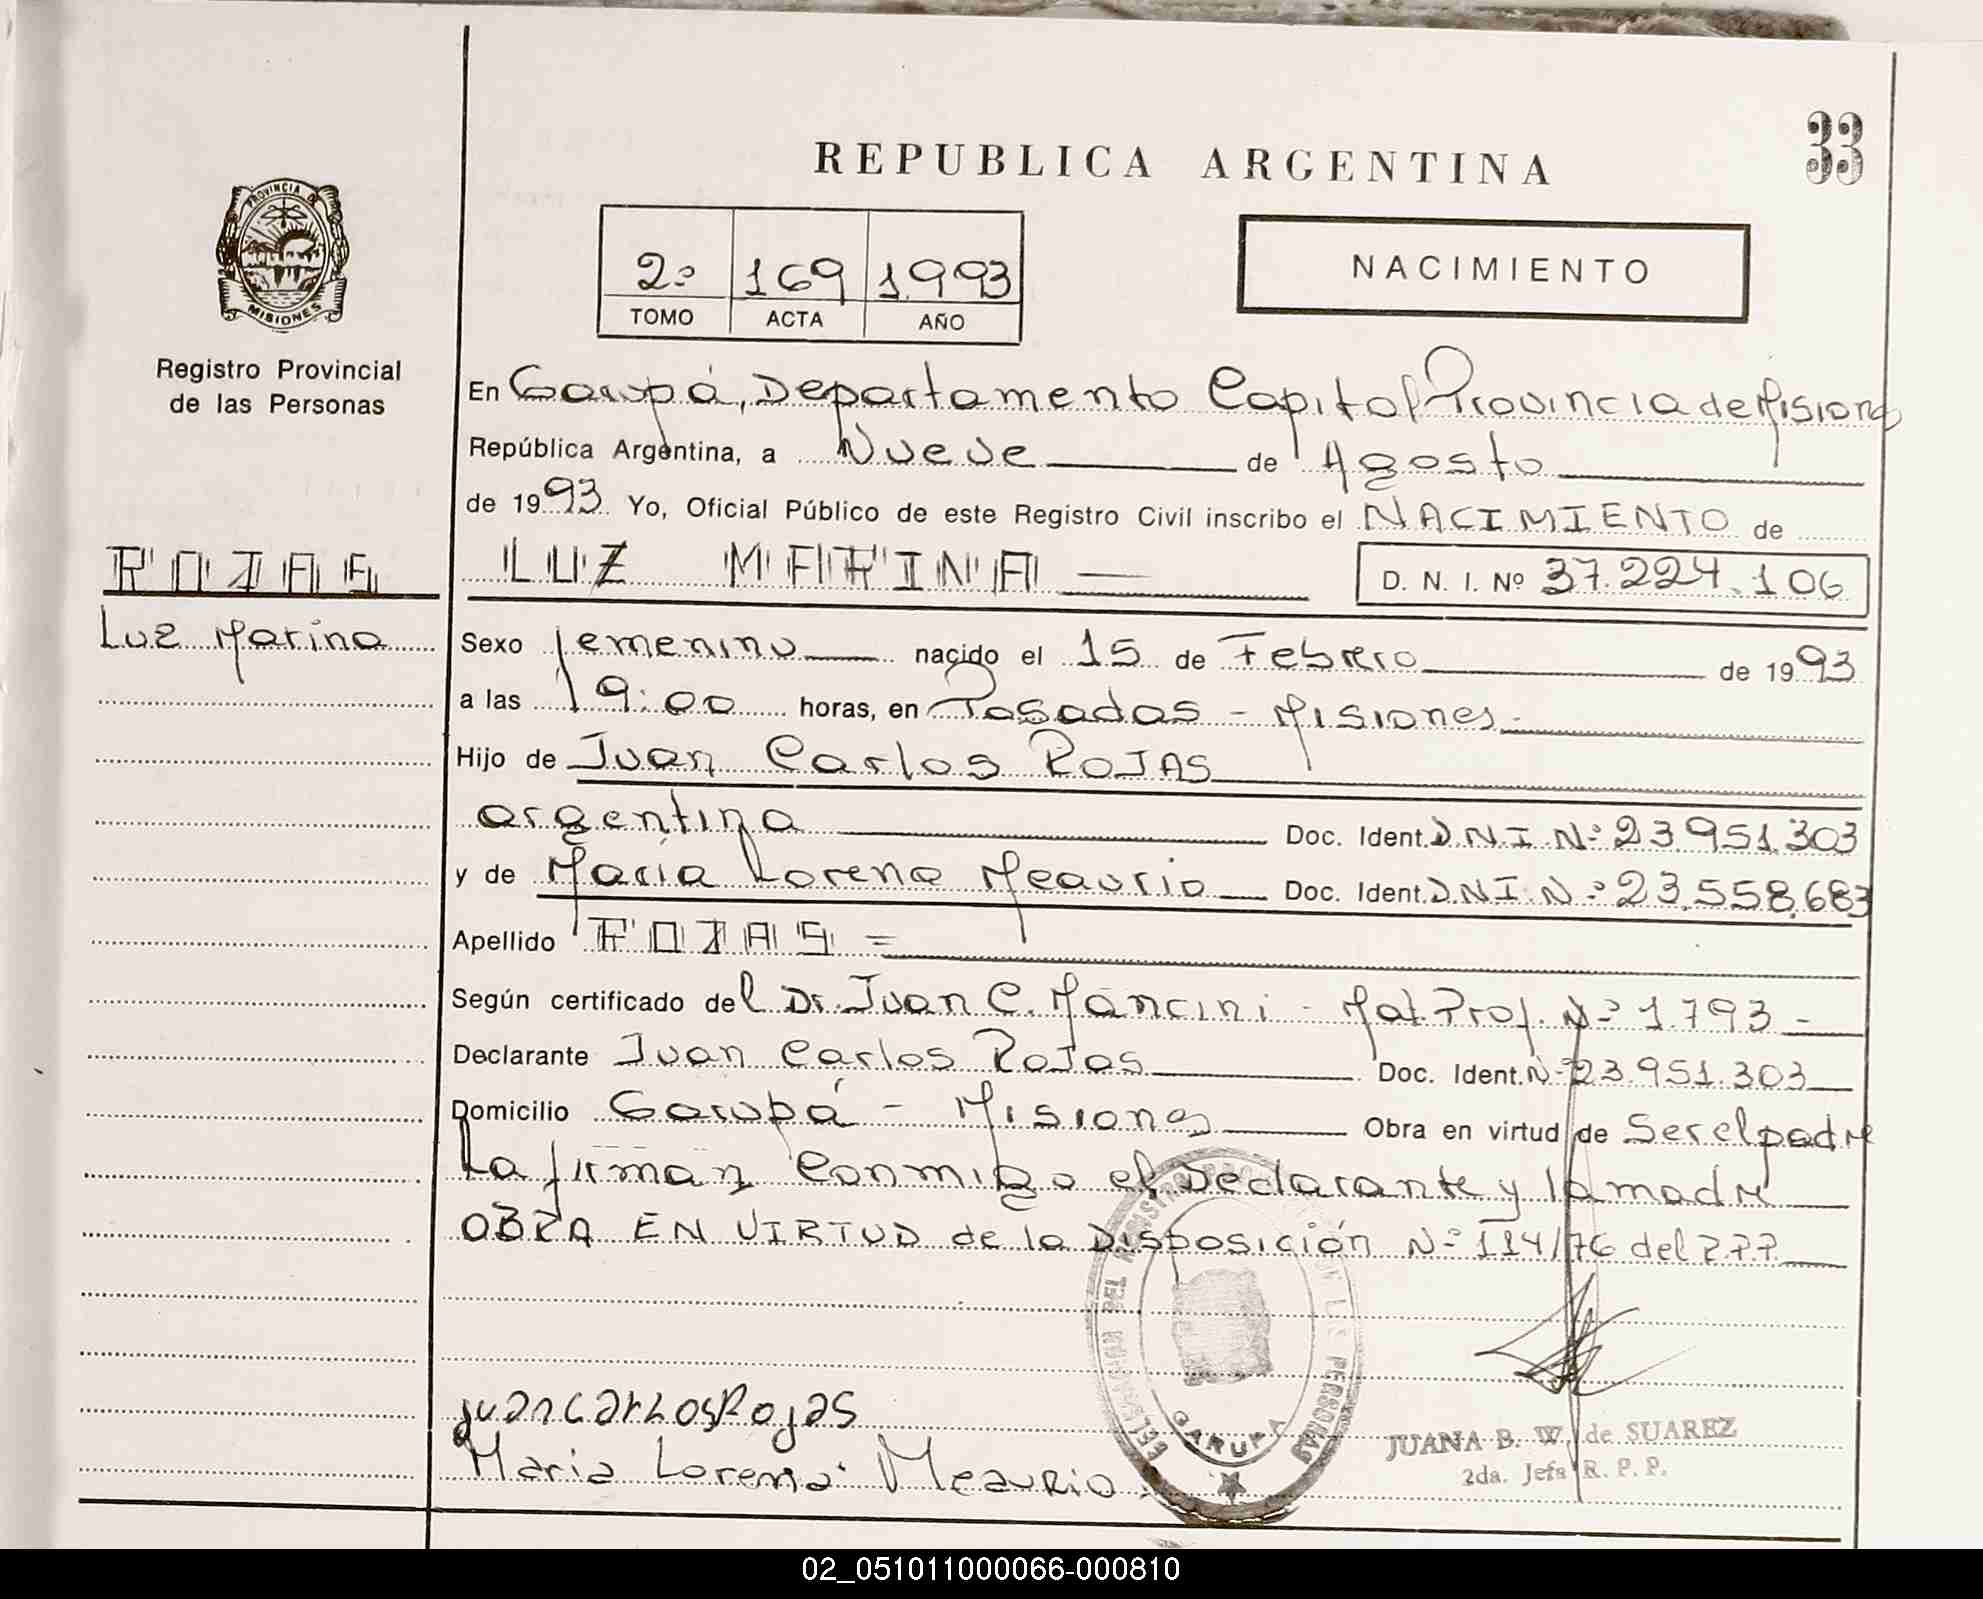 33
REPUBLICA ARGENTINA
PROVINCIA DE
MISIONES
Registro Provincial
de las Personas
2º 169 1993
TOMO ACTA AÑO
NACIMIENTO
En Garupá, Departamento Capital Provincia de Misiones
República Argentina, a Nueve de Agosto
de 1993 Yo, Oficial Público de este Registro Civil inscribo el NACIMIENTO de
ROJAS
Luz Marina
LUZ MARINA
D. N. I. Nº 37.224.106
Sexo femenino nacido el 15 de Febrero de 1993
a las 19:00 horas, en Posadas - Misiones.
Hijo de Juan Carlos ROJAS
argentina Doc. Ident. D.N.I. Nº 23.951.303
y de María Lorena Meaurio Doc. Ident. D.N.I. Nº 23.558.683
Apellido ROJAS =
Según certificado del Dr. Juan C. Mancini - Mat. Prof. Nº 1.793 -
Declarante Juan Carlos Rojas Doc. Ident. Nº 23.951.303
Domicilio Garupá - Misiones Obra en virtud de Ser el padre
La firman conmigo el Declarante y la madre
OBRA EN VIRTUD de la Disposición Nº 114/76 del R.P.P.
Juan Carlos Rojas
Maria Lorena Meaurio
DELEGACION DEL REGISTRO DE LAS PERSONAS
GARUPA
JUANA B. W. de SUAREZ
2da. Jefa R. P. P.
02_051011000066-000810